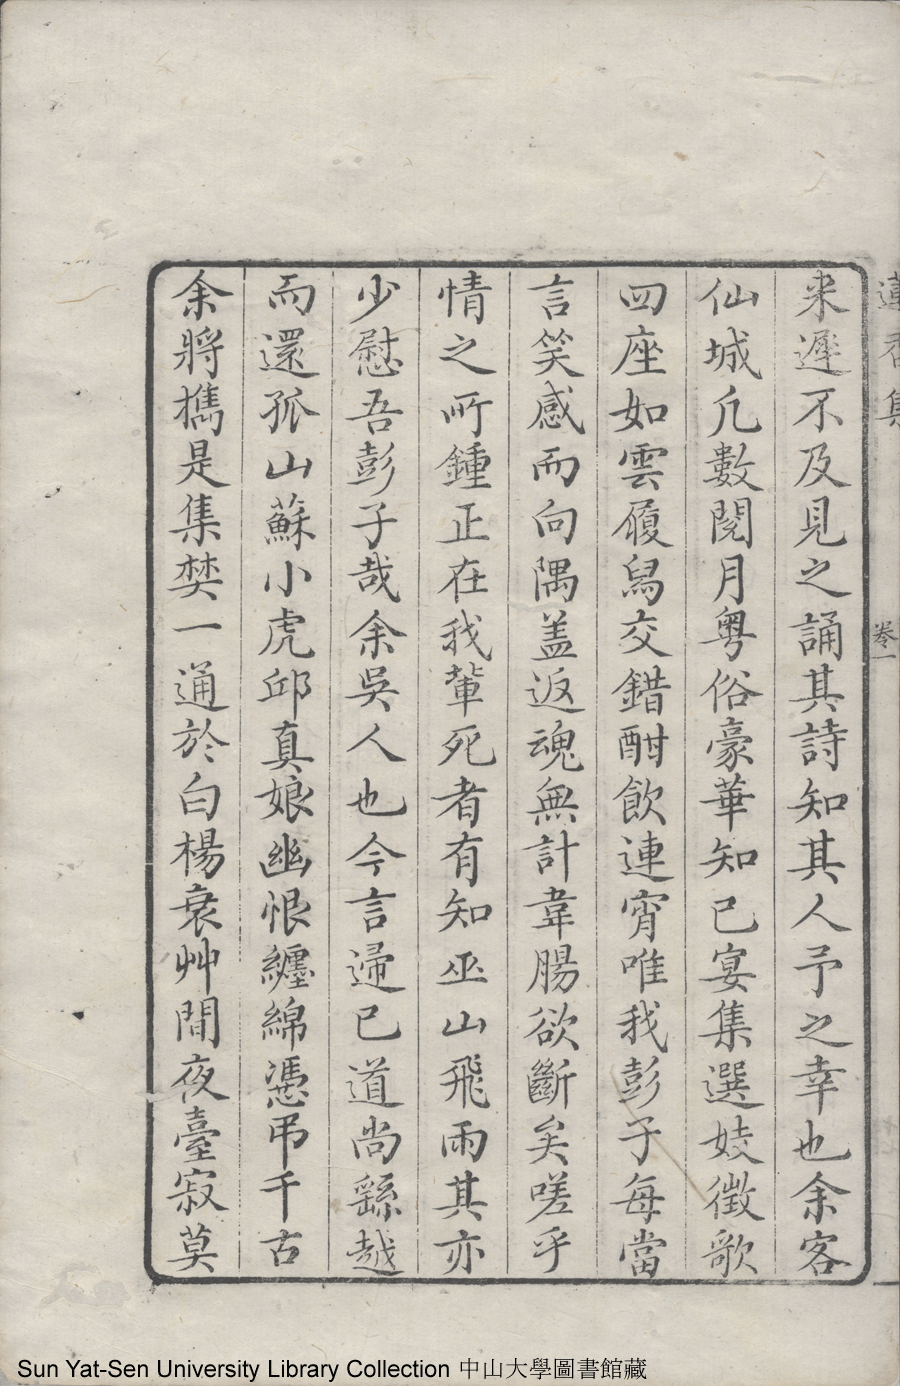 蓮香集
卷一
来遲不及見之誦其詩知其人予之幸也余客
仙城凢數閱月粤俗豪華知己宴集選妓徴歌
四座如雲履舄交錯酣飲連宵唯我彭子每當
言笑感而向隅盖返魂無計韋腸欲斷矣嗟乎
情之所鍾正在我軰死者有知巫山飛雨其亦
少慰吾彭子哉余吳人也今言歸已道尚繇越
而還孤山蘇小虎邱真娘幽恨纏綿憑弔千古
余將攜是集焚一通於白楊衰艸間夜臺寂莫
Sun Yat-Sen University Library Collection 中山大學圖書館藏